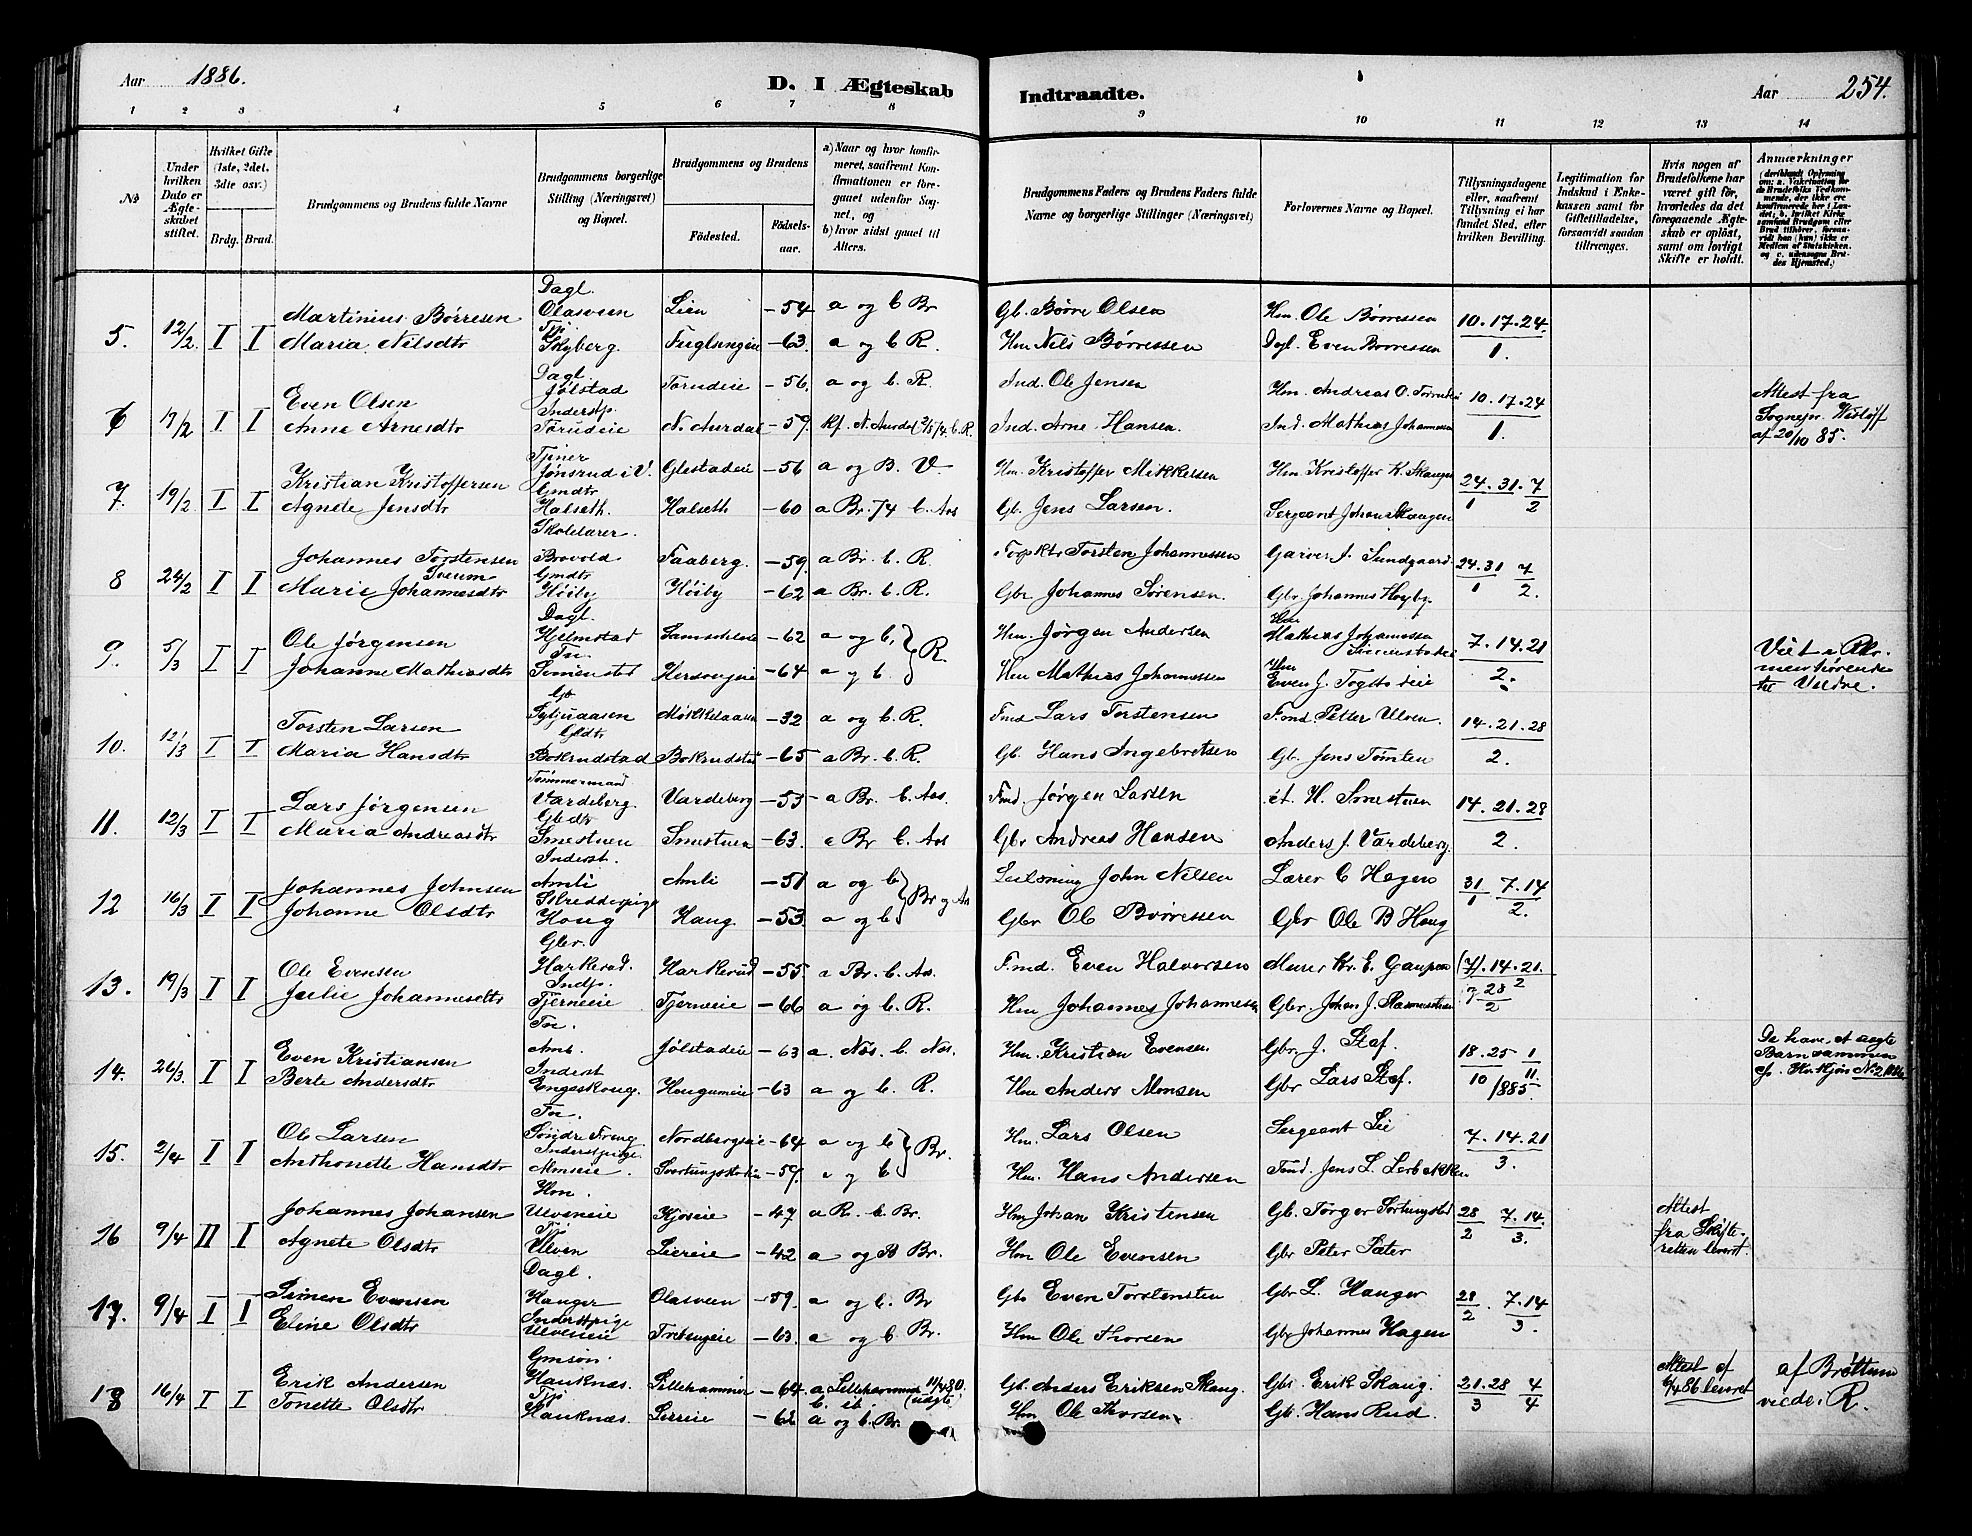 Aar 1886.
D. I Ægteskab Indtraadte.
Aar 254.
1 2 3 4 5 6 7 8 9 10 11 12 13 14
№
Under hvilken Dato er Ægteskabet stiftet.
Hvilket Gifte (1ste, 2det, 3die osv.)
Brdg. Brud.
Brudgommens og Brudens fulde Navne
Brudgommens borgerlige Stilling (Næringsvei) og Bopæl.
Brudgommens og Brudens
Fødested.
Fødselsaar.
a) Naar og hvor konfirmeret, saafremt Konfirmationen er foregaaet udenfor Sognet, og
b) hvor sidst gaaet til Alters.
Brudgommens Faders og Brudens Faders fulde Navne og borgerlige Stillinger (Næringsvei)
Forlovernes Navne og Bopæl.
Tillysningsdagene eller, saafremt Tillysning ei har fundet Sted, efter hvilken Bevilling.
Legitimation for Indskud i Enkekassen samt for Giftetilladelse, forsaavidt saadan tiltrænges.
Hvis nogen af Brudefolkene har været gift før, hvorledes da det foregaaende Ægteskab er opløst, samt om lovligt Skifte er holdt.
Anmærkninger
5. 12/2 I I Martinius Börresen Dagl. Olasveen Lien -54 a og b Br Gb. Börre Olsen Hm. Ole Börressen 10.17.24
Maria Nilsdtr Tpi Skyberg. -63. a og b R. Hm Nils Börressen Dgl. Even Börressen 1.
6 17/2 I I Even Olsen Dagl. Jølstad -56. a og b. R. Ind. Ole Jensen Hm. Andreas O. 10.17.24 Attest fra
Anne Arnesdtr Inderstp. Tørudeie N. Aurdal -59. Kf. N. Aurdal b. R. Ind. Arne Hansen. Ind. Mathias Johannessen 1. Sognepr. af 20/10 85.
7. 19/2 I I Kristian Kristoffersen Tjener Jønsrud i V. Glestadeie -56 a og B. V. Hm. Kristoffer Mikkelsen Hm Kristoffer K. Skaugen 24.31.7
Agnete Jensdtr Gmdtr Halseth. Halseth -60 a Br. 74 b. Aas Gb. Jens Larsen. Sergeant Johan Skaugen 1 2
8 24/2 I I Johannes Torstensen Sveum Skolelærer. Brovold Faaberg. -59. a Br. b. R. Torsten Johannessen Garver J. Sundgaard 24.31 7
Marie Johannesdtr Gmdtr Höiby Höiby -62 a Br. b. R. Gbr Johannes Sørensen. Gbr. Johannes Høyby. 1 2.
9. 5/3 I I Ole Jørgensen Dagl. Hjelmstad -62 a og b. R. Hm. Jørgen Andersen Hm Mathias Johannessen 7.14.21
Johanne Mathiasdtr -64 a og b. Hm Mathias Johannessen Hm Even J. 2. til Valdre.
10. 12/3 I I Torsten Larsen Gb -32 a og b. R. Fmd Lars Torstensen Fmd Petter Ulven. 14.21.28
Maria Hansdtr Gbdtr Bokrudstad -65 a Br. b. R. Gb. Hans Ingebretsen Gb. Jens Tømten 2.
11. 12/3 I I Lars Jørgensen Tømmermand Vardeberg. Vardeberg -53 a Br. b. Aas. Fmd. Jørgen Larsen H. Smestuen 14.21.28
Maria Andreasdtr Gbdtr Smestuen Smestuen -63. a Br b. Aas Gbr Andreas Hansen Anders J. Vardeberg. 2.
12 16/3 I I Johannes Johnsen Inderst. Amli Amli -51 a og b Br og Aas John Nilsen Lærer C Hagen 31 7.14
Johanne Olsdtr Haug Haug. -53. a og b Gbr Ole Börressen Gbr Ole B Haug 1 2.
13. 19/3 I I Ole Evensen Gbr. Harkerud. Harkerud -55. a Br. b. Aas. Fmd. Even Halvorsen Murer Kr. E. Gaupen (7).14.21.
Julie Johannesdtr Indp. Tjerneie Tjerneie -66 a og b. R. Hm Johannes Johannessen Gbr. Johan J. 28 2
14. 26/3 I I Even Kristiansen Tor. Aml. Jølstadeie -63 a. Næs. b. Næs. Hm. Kristian Evensen Gbr. J. Staf. 18.25 1 De have et uægte
Berte Andersdtr Inderst Engeskoug. Haugumeie -63 a og b. R. Hm Anders Monsen Gbr Lars Staf. 10 11. /1885. Barn sammen
15. 2/4 I I Ole Larsen Tor. Søndre Freng. -64 a og b Br. Hm. Lars Olsen Sergeant Lie 7.14.21
Anthonette Hansdtr Inderstpige Monseie. -59. a og b Hm. Hans Andersen Fmd. Jens L. Lerbakken 3.
16 9/4 II I Johannes Johansen Hm. Ulveneie Kjøseie -47 a R. b. Br. Hm Johan Kristensen Gb. Tørger 28 7.14. Attest
Agnete Olsdtr Tp Ulven Liereie -42 a og B Br. Hm Ole Evensen Gbr Peter Sæter 2 3. fra Skifteretten leveret.
17. 9/4 I I Simen Evensen Dagl. Hanger Olasveen -59. a og b. Br Gb Even Torstensen Gbr L. Hanger 28 7.14
Eline Olsdtr Inderstpige Ulveneie -63. a og b Br. Hm Ole Thorsen Gbr Johannes Hagen 2 3.
18 16/4 I I Erik Andersen Gmsøn. Hauknæs. Lillehammer -64 a Lillehammer 11/4 80. (udgt.) Gb. Anders Eriksen Skaug. Gbr. Erik Skaug. 21.28 4 Attest af 6/4 86 leveret af Brøttum
Tonette Olsdtr Tpi Hauknæs. Liereie -62 a og b. Br. Hm Ole Thorsen. Gb. Hans Rud. 3 4 viede i R.